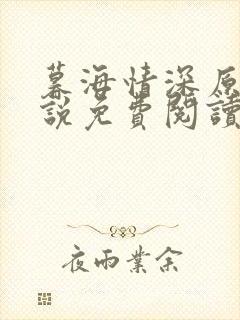 幕海情深原
說免費閱讀
夜雨業余